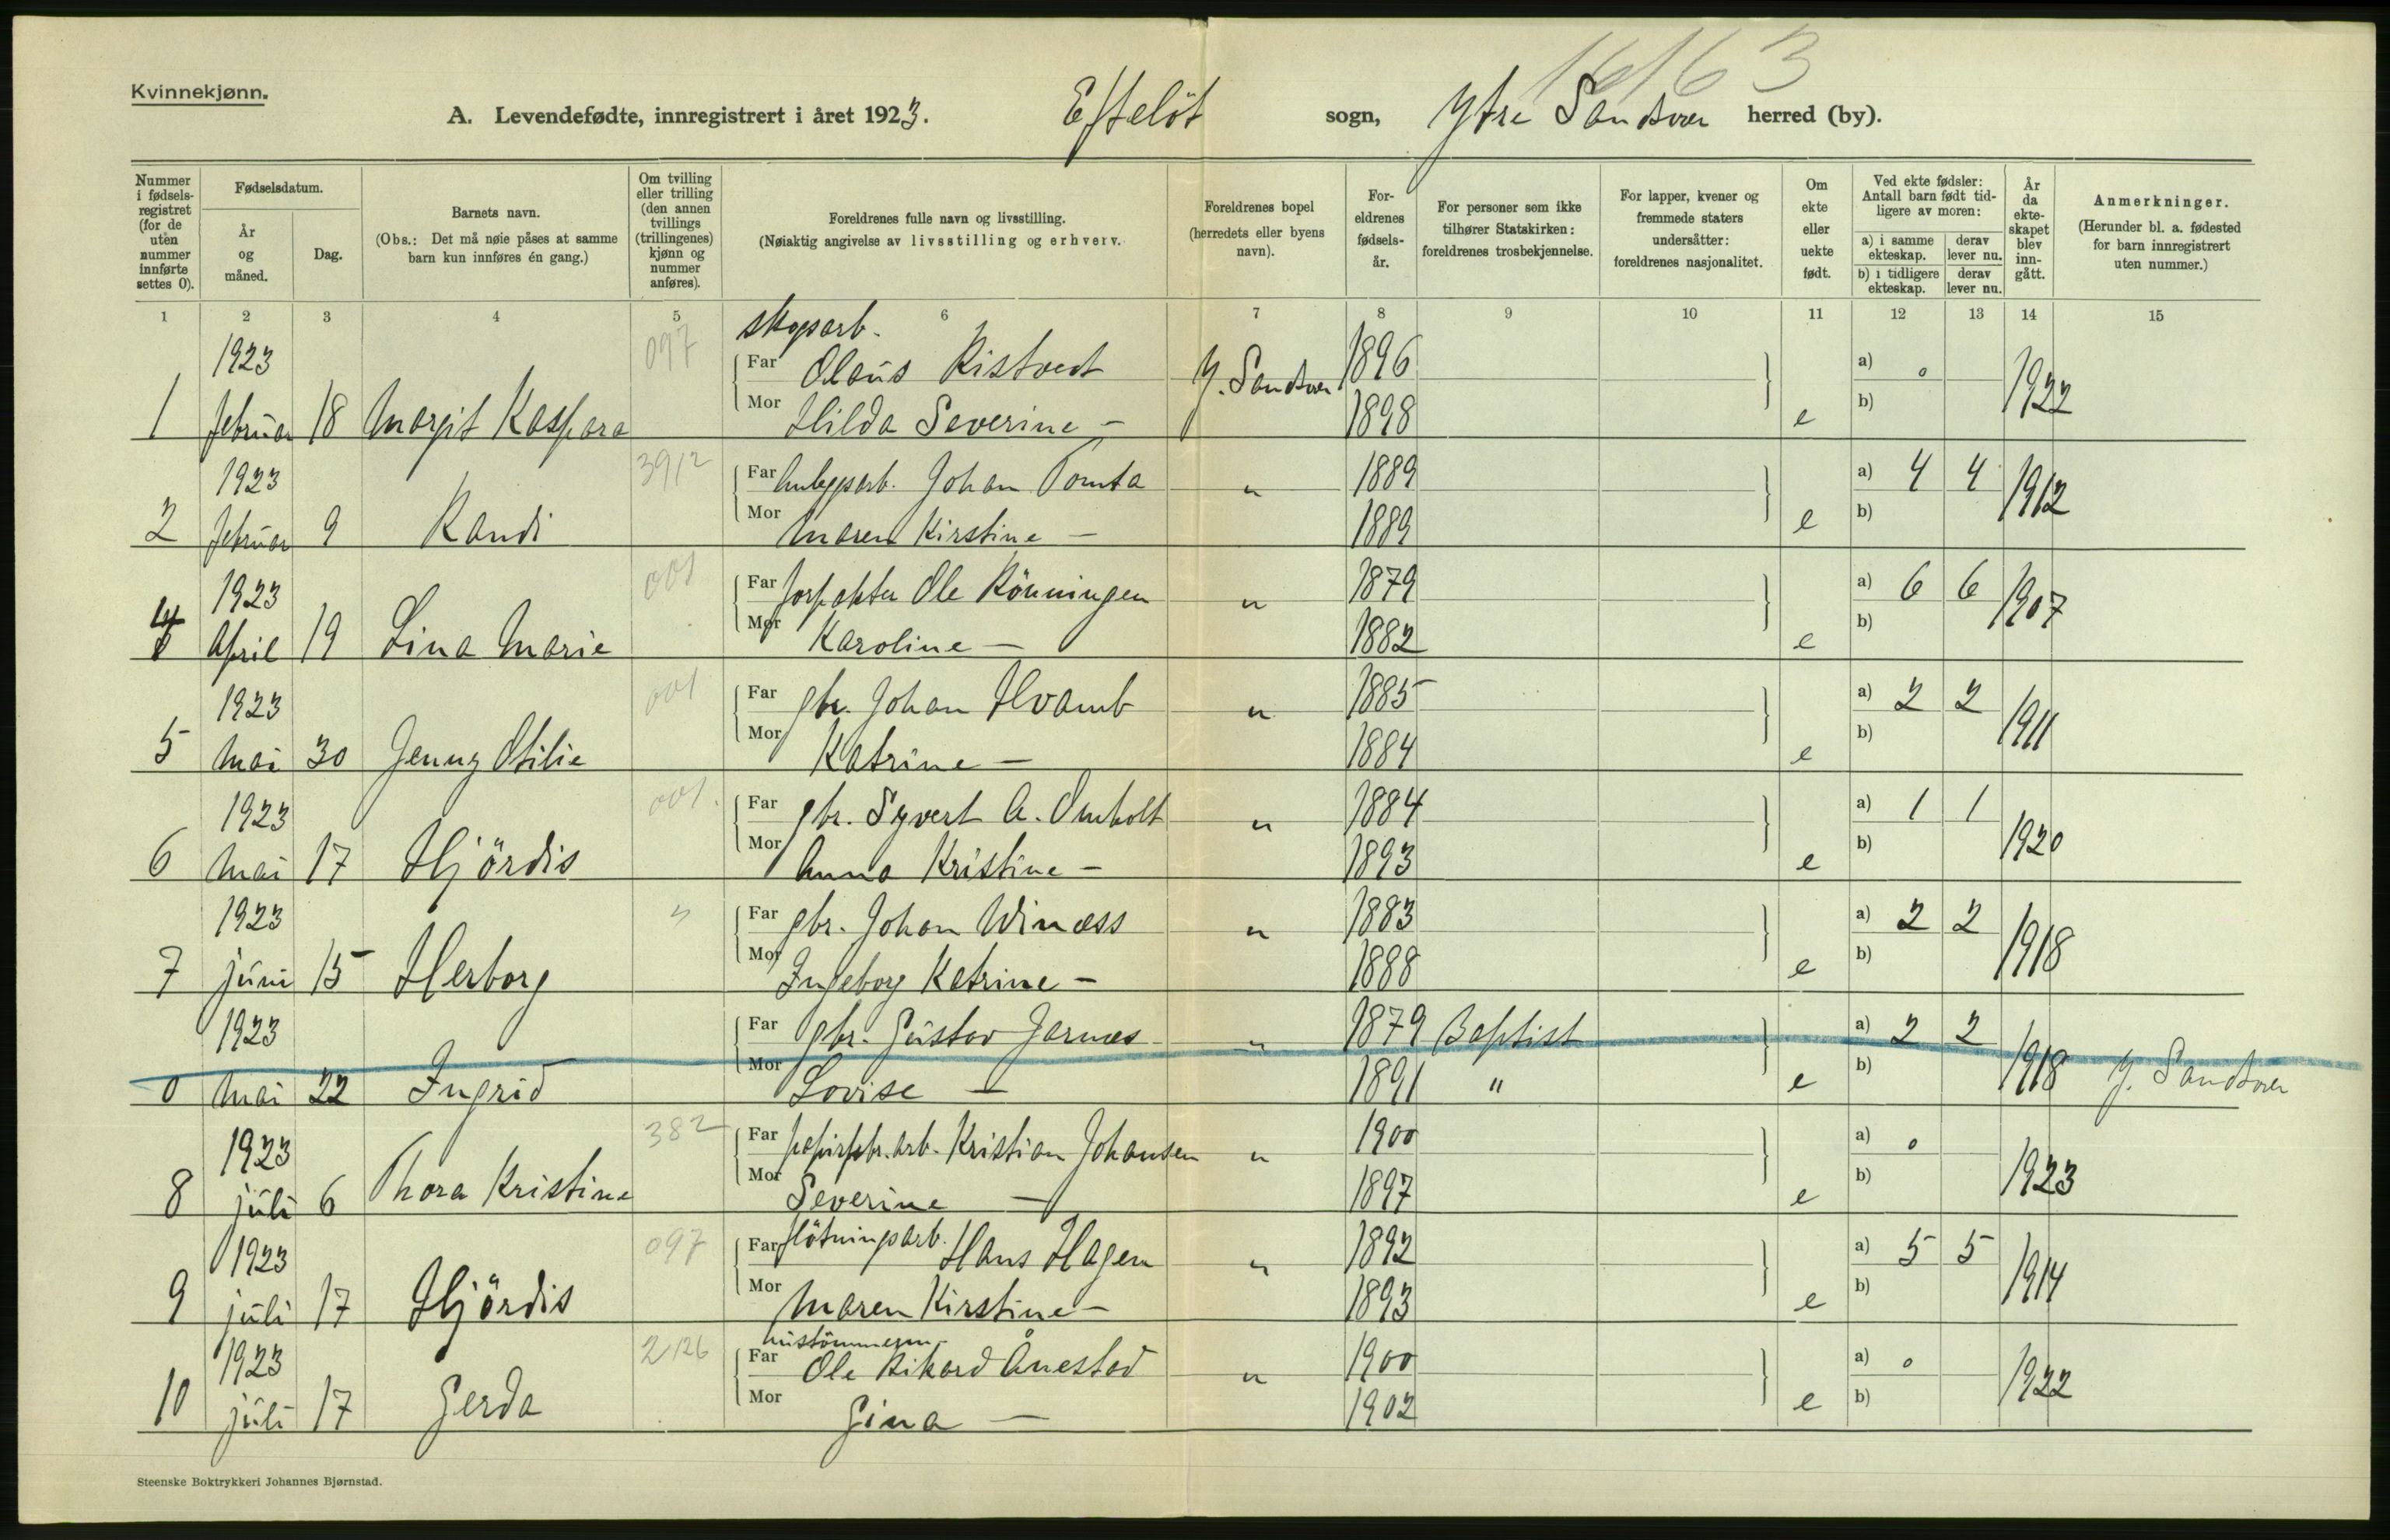 16163
Kvinnekjønn.
A. Levendefødte, innregistrert i året 1923. Efteløt sogn, Ytre Sandsvær herred (by).
Nummer i fødselsregistret (for de uten nummer innførte settes 0).
Fødselsdatum.
År og måned.
Dag.
Barnets navn.
(Obs.: Det må nøie påses at samme barn kun innføres én gang.)
Om tvilling eller trilling (den annen tvillings (trillingenes) kjønn og nummer anføres).
Foreldrenes fulle navn og livsstilling.
(Nøiaktig angivelse av livsstilling og erhverv.
Foreldrenes bopel (herredets eller byens navn).
Foreldrenes fødselsår.
For personer som ikke tilhører Statskirken: foreldrenes trosbekjennelse.
For lapper, kvener og fremmede staters undersåtter: foreldrenes nasjonalitet.
Om ekte eller uekte født.
Ved ekte fødsler: Antall barn født tidligere av moren:
a) i samme ekteskap. derav lever nu.
b) i tidligere ekteskap. derav lever nu.
År da ekteskapet blev inngått.
Anmerkninger.
(Herunder bl. a. fødested for barn innregistrert uten nummer.)
1 2 3 4 5 6 7 8 9 10 11 12 13 14 15
1923 097 skogsarb.
Far Olaus Ristvedt Y. Sandsvær 1896 a) 0 1922
1 februar 18 Margit Kaspara Mor Hilda Severine – 1898 e b)
1923 3912 Far Anleggsarb. Johan Tomta " 1889 a) 4 4 1912
2 februar 9 Randi Mor Maren Kirstine – 1889 e b)
1923 001 Far forpakter Ole Rönningen " 1879 a) 6 6 1907
4 April 19 Lina Marie Mor Karoline – 1882 e b)
1923 001 Far gbr. Johan Hvamb " 1885 a) 2 2 1911
5 Mai 30 Jenny Otilie Mor Katrine – 1884 e b)
1923 001. Far gbr. Syvert A. Omholt " 1884 a) 1 1 1920
6 Mai 17 Hjördis Mor Anna Kristine – 1893 e b)
1923 " Far gbr. Johan Winæss " 1883 a) 2 2 1918
7 juni 15 Herborg Mor Ingeborg Katrine – 1888 e b)
1923 Far gbr. Gustav Jarnæs " 1879 Baptist a) 2 2 1918
0 Mai 22 Ingrid Mor Lovise – 1891 " e b) Y. Sandsvær
1923 382 Far papirfabr. arb. Kristian Johansen " 1900 a) 0 1923
8 juli 6 Thora Kristine Mor Severine – 1897 e b)
1923 097 Far flötningsarb. Hans Hagen " 1892 a) 5 5 1914
9 juli 17 Hjördis Mor Maren Kirstine – 1893 e b)
1923 2126 hustömmerm.
Far Ole Rikard Ånestad " 1900 a) 0 1922
10 juli 17 Gerda Mor Gina – 1902 e b)
Steenske Boktrykkeri Johannes Bjørnstad.